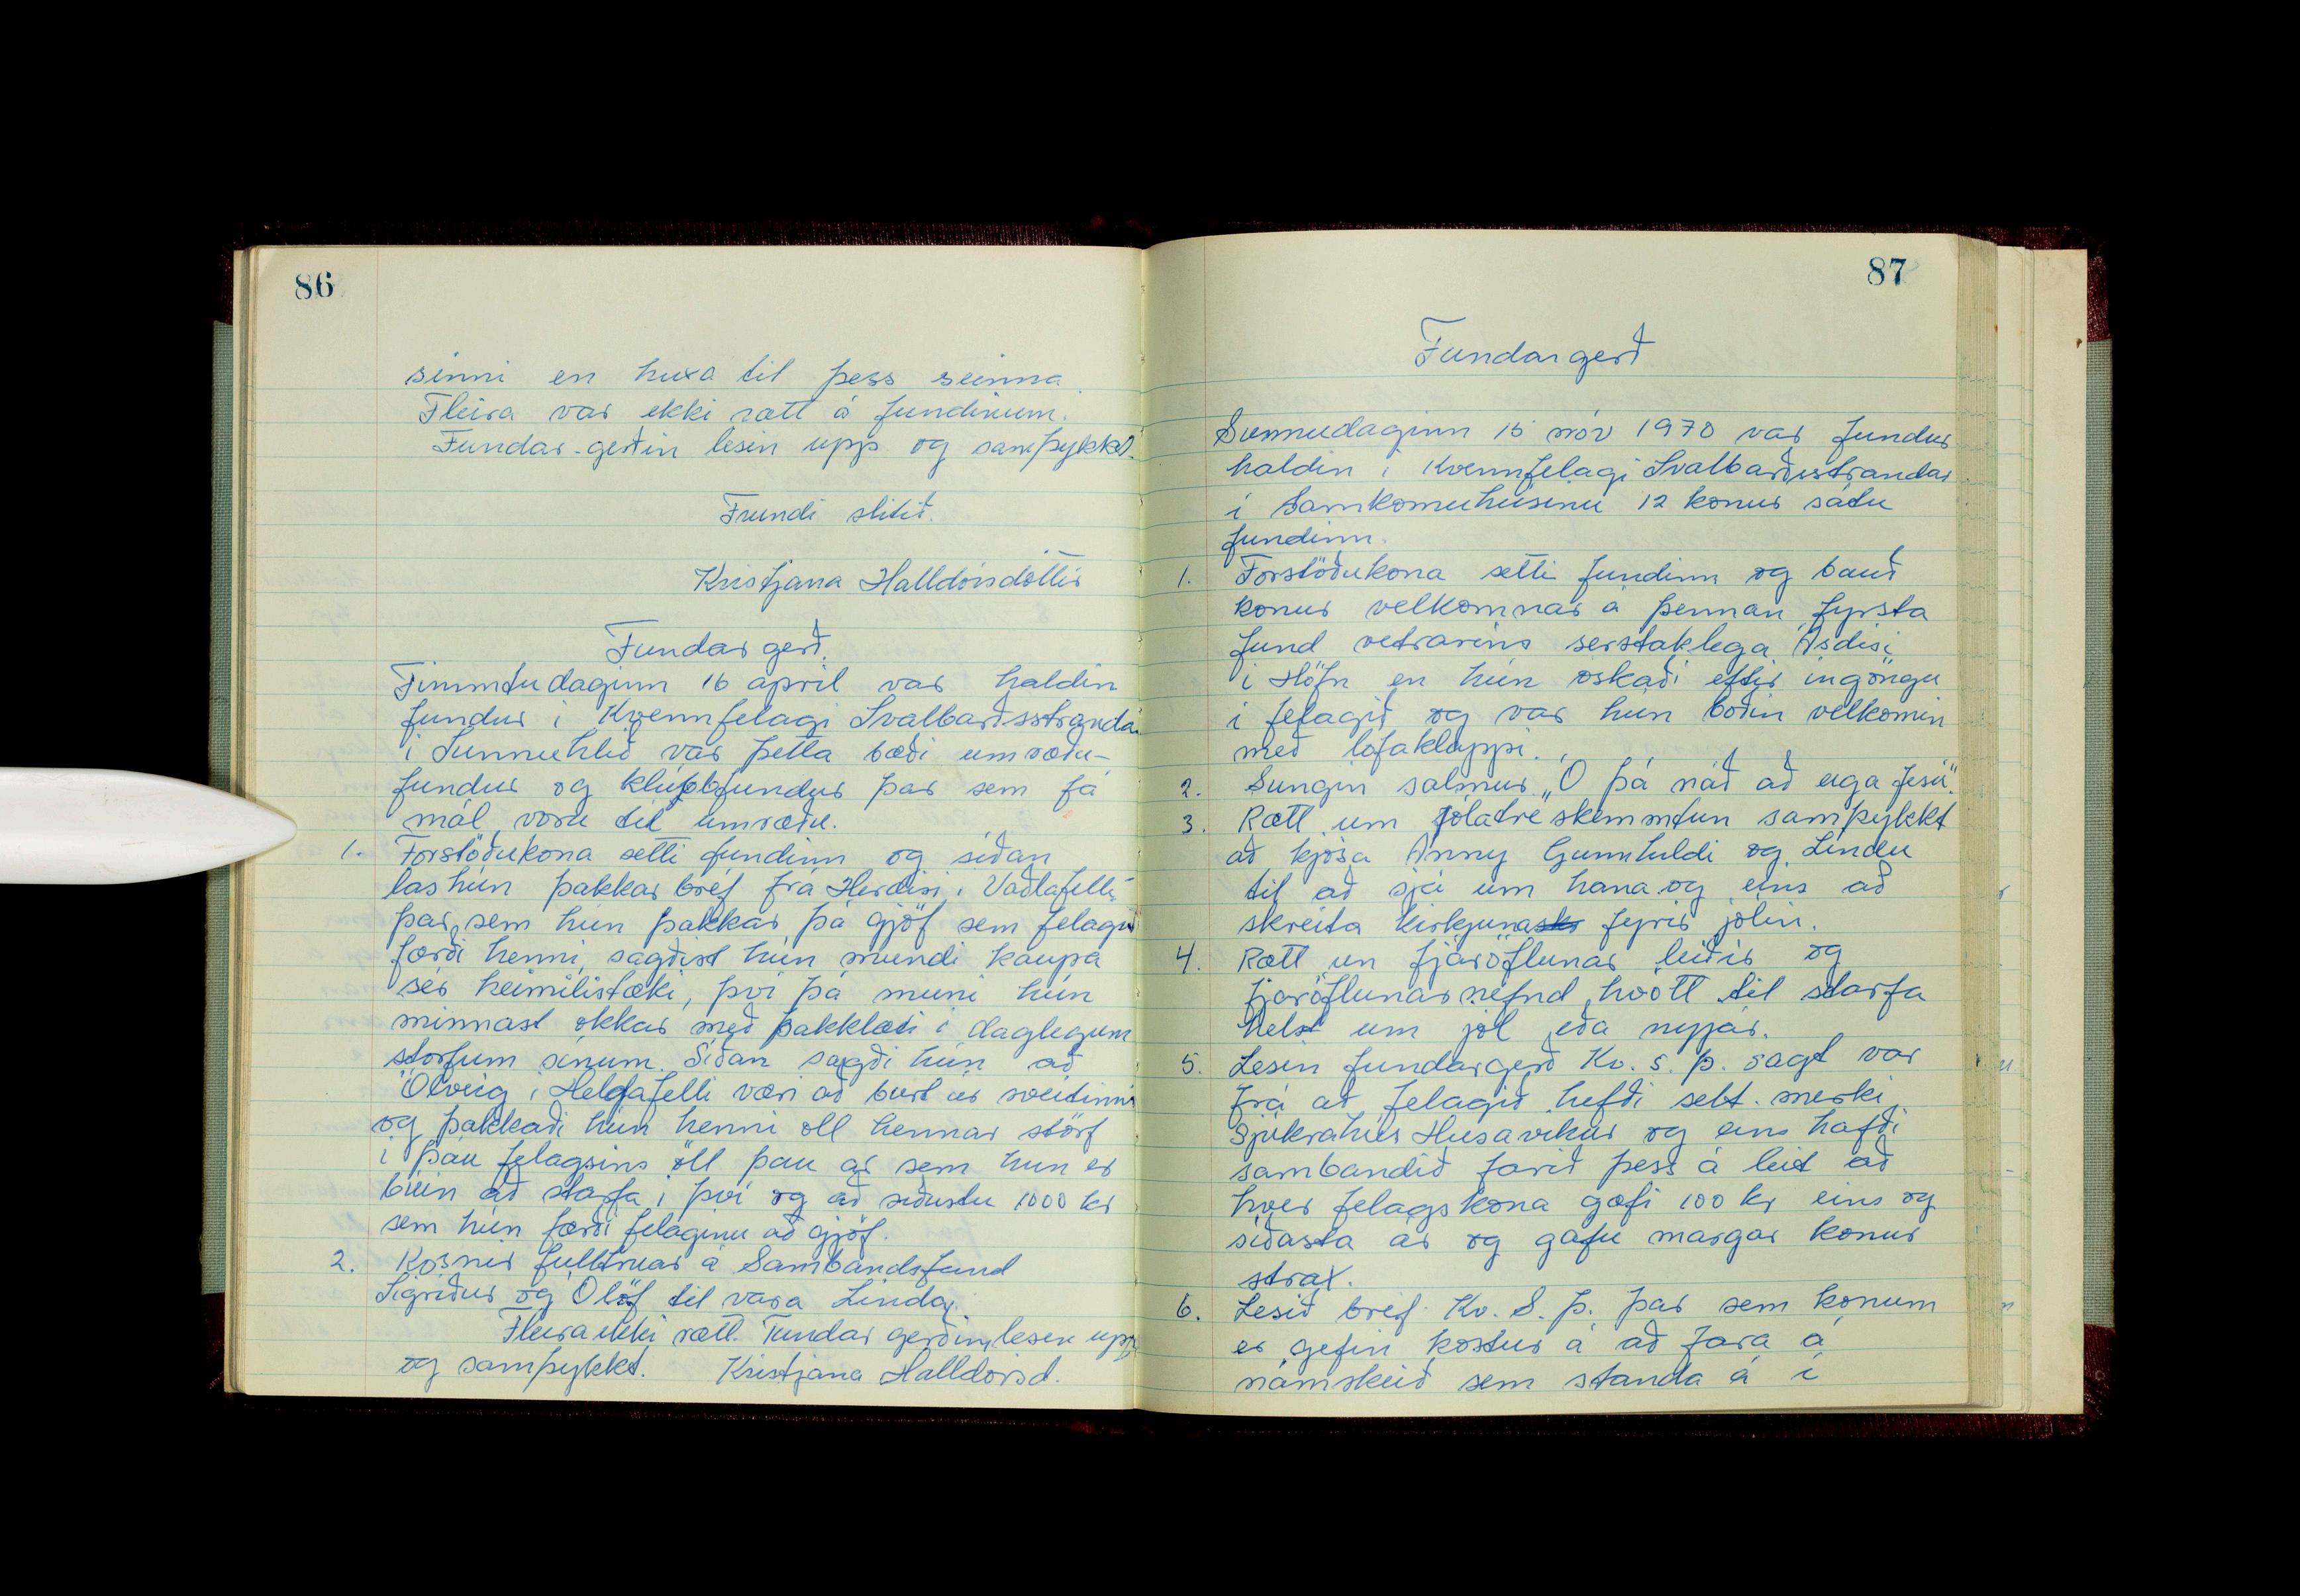 86
sinni en huxa til þess seinna.
Fleira var ekki rætt á fundinum.
Fundar-gerðin lesin upp og samþykkt.
Fundi slitið.
Kristjana Halldórsdóttir
Fundar gerð.
Fimmtudaginn 16 apríl var haldin
fundur í Kvennfelagi Svalbarðsstrandar
í Sunnuhlíð var þetta bæði umræðu-
fundur og klúbbfundur þar sem fá
mál voru til umræðu.
1. Forstöðukona setti fundinn og síðan
las hún þakkar bréf frá Herdísi í Vaðlafelli
þar sem hun þakkar þá gjöf sem felagið
færði henni, sagðist hún mundi kaupa
sér heimilistæki, því þá muni hún
minnast okkar með þakklæti í daglegum
störfum sínum. Síðan sagði hún að
Ölveig í Helgafelli væri að burt úr sveitinni
og þakkaði hún henni öll hennar störf
í þau felagsins öll þau ár sem hun er
búin að starfa í því og að síðustu 1000 kr
sem hún færði felaginu að gjöf.
2. Kosnir fulltruar á Sambandsfund
Sigríður og Ólöf til vara Linda.
Fleira ekki rætt. Fundar gerðin lesin upp
og samþykkt. Kristjana Halldórsd.
87
Fundargerð
Sunnudaginn 15 nóv 1970 var fundur
haldin í Kvennfelagi Svalbarðsstrandar
í Samkomuhúsinu 12 konur sátu
fundinn.
1. Forstöðukona setti fundinn og bauð
konur velkomnar á þennan fyrsta
fund vetrarins serstaklega Ásdísi
í Höfn en hún óskaði eftir ingöngu
í felagið og var hun boðin velkomin
með lófaklappi.
2. Sungin salmur „Ó þá náð að eiga Jesú".
3. Rætt um jólatréskemmtun samþykkt
að kjósa Önny Gunnhildi og Lindu
til að sjá um hana og eins að
skreita kirkjuna fyrir jólin.
4. Rætt um fjáröflunar leiðir og
fjaröflunarnefnd hvött til starfa
helst um jól eða nyjár.
5. Lesin fundargerð Kv. s. þ. sagt var
frá að felagið hefði selt merki
Sjúkrahús Husavikur og eins hafði
sambandið farið þess á leit að
hver felagskona gæfi 100 kr eins og
síðasta ár og gáfu margar konur
strax.
6. Lesið bréf Kv. S. þ. þar sem konum
er gefin kostur á að fara á
námskeið sem standa á í